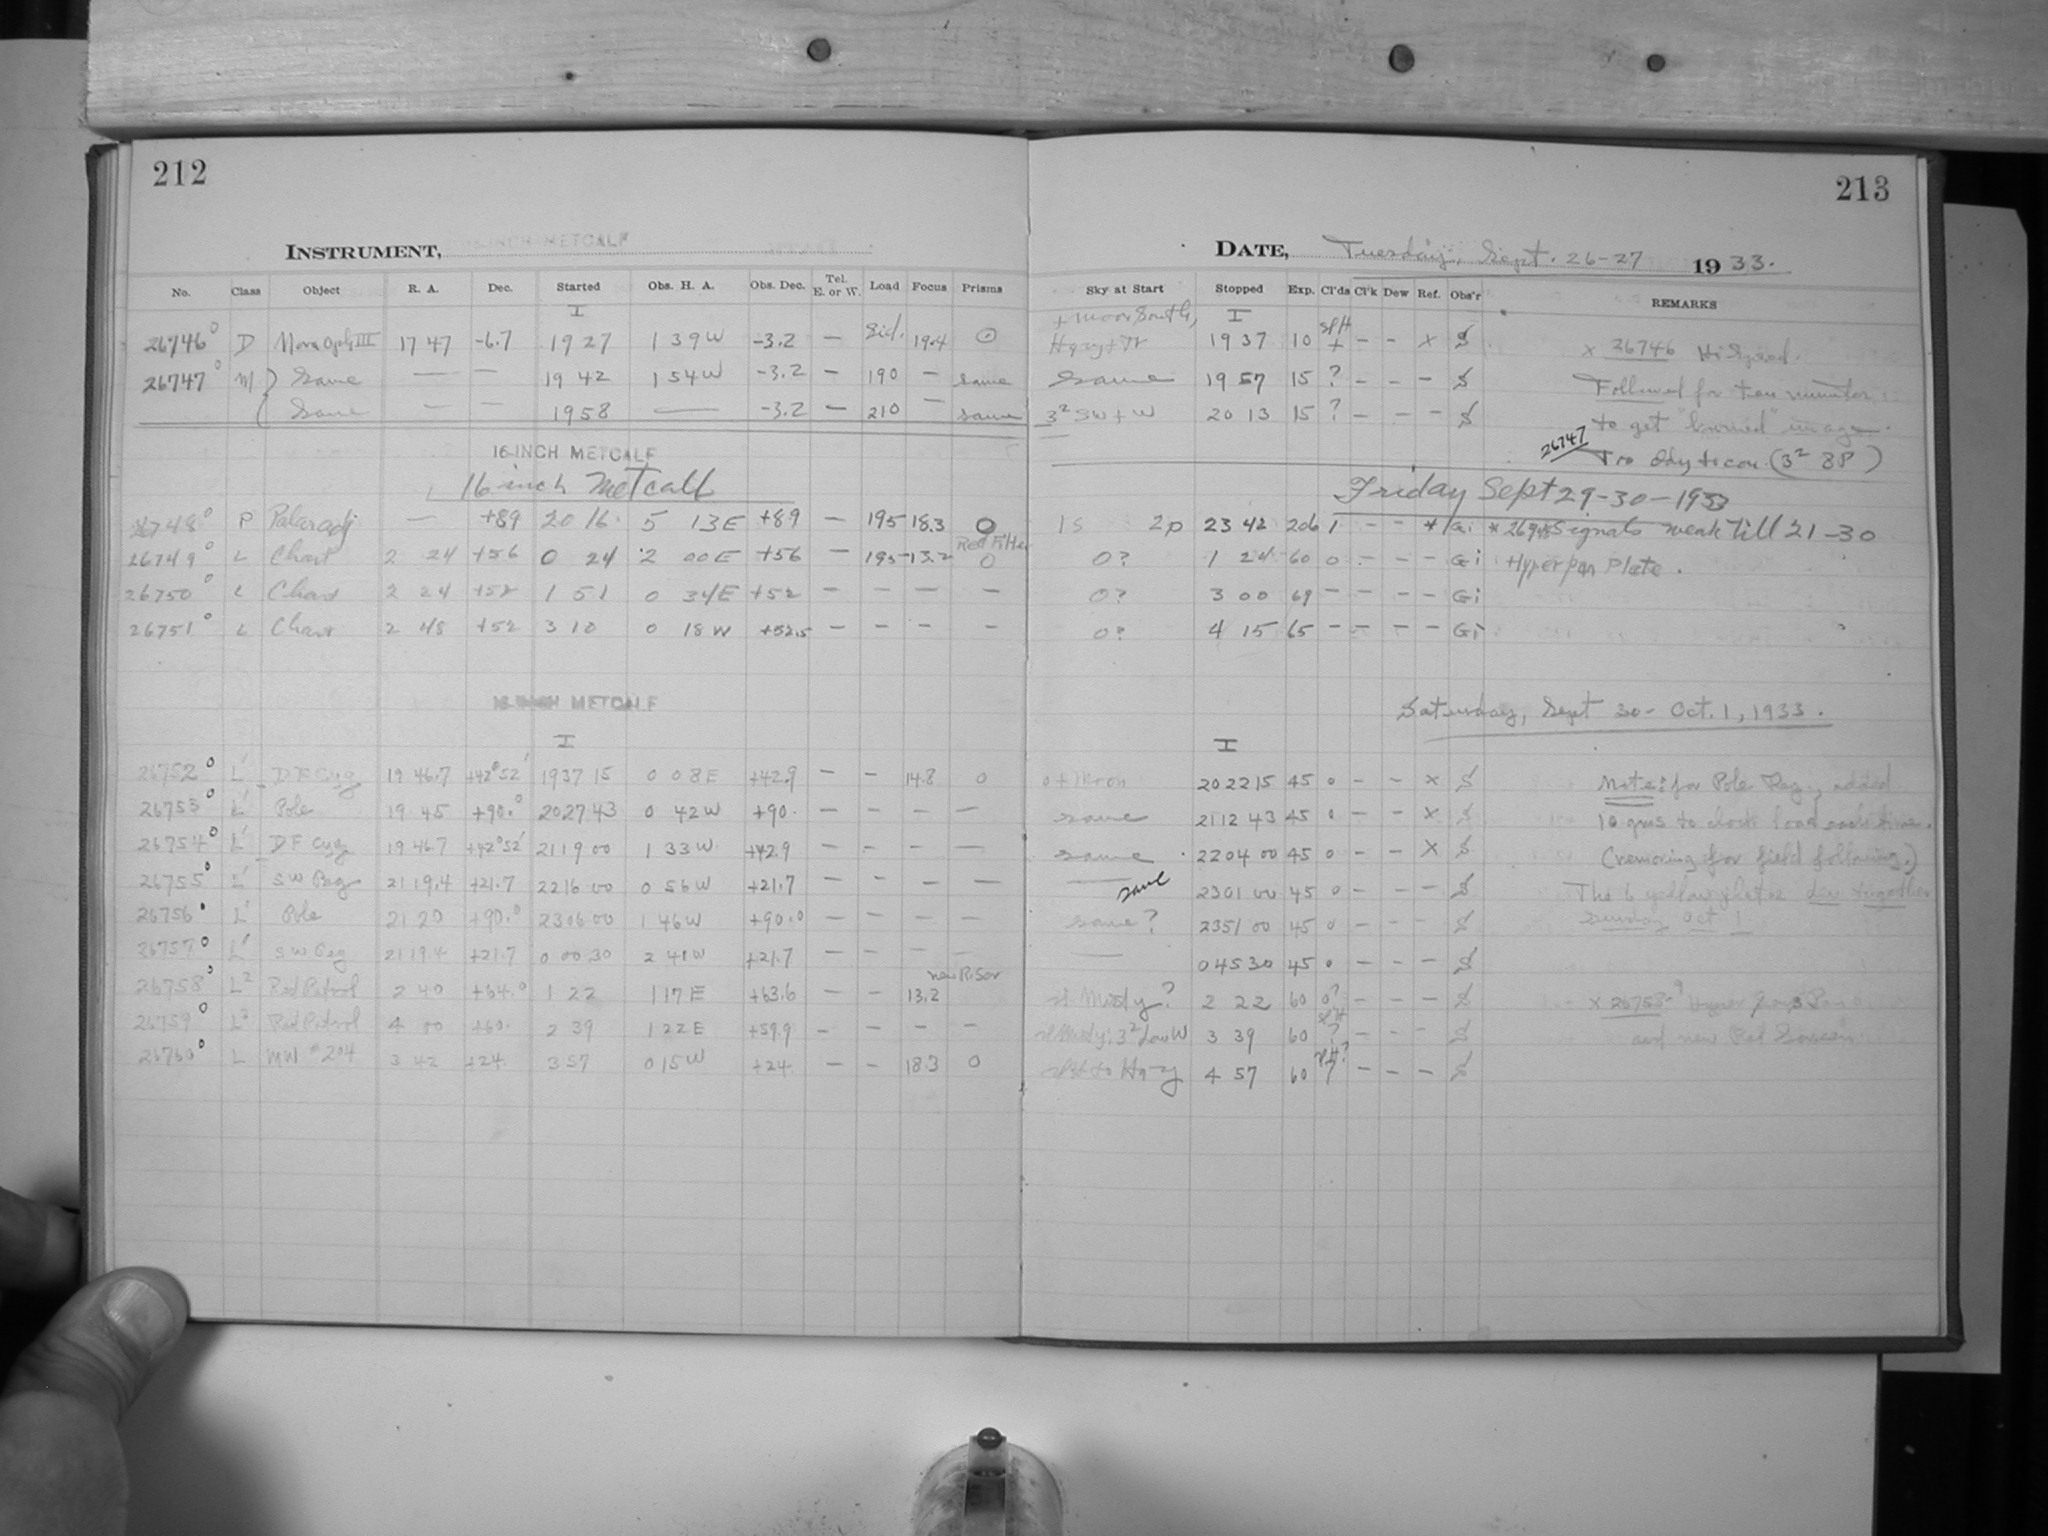 212
INSTRUMENT, 16-INCH METCALF
No. Class Object R. A. Dec. Started Obs. H. A. Obs. Dec. Tel. E. or W. Load Focus Prisms
I
26746° D Nova Oph III 17 47 -6.7 19 27 1 39 W -3.2 — Sid. 19.4 ⊙
26747° M Same — — 19 42 1 54 W -3.2 — 190 — same
Same — — 1958 — -3.2 — 210 — same
16-INCH METCALF
16 inch Metcalf
26748° P Polar adj — +89 20 16 5 13 E +89 — 195 18.3 O
Red Filter
26749° L Chart 2 24 +56 0 24 2 00 E +56 — 195 13.2 O
26750° L Chart 2 24 +52 1 51 0 34 E +52 — — — —
26751° L Chart 2 48 +52 3 10 0 18 W +52.5 — — — —
16-INCH METCALF
I
26752° L' DF Cyg 19 46.7 +42°52' 1937 15 0 08 E +42.9 — — 14.8 0
26753° L' Pole 19 45 +90.° 2027 43 0 42 W +90. — — — —
26754° L' DF Cyg 19 46.7 +42°52' 2119 00 1 33 W +42.9 — — — —
26755° L' SW Peg 21 19.4 +21.7 2216 00 0 56 W +21.7 — — — —
26756° L' Pole 21 20 +90.° 2306 00 1 46 W +90.0 — — — —
26757° L' SW Peg 21 19.4 +21.7 0 00 30 2 41 W +21.7 — — — —
26758° L² Red Patrol 2 40 +64.° 1 22 1 17 E +63.6 — — 13.2
26759° L² Red Patrol 4 00 +60. 2 39 1 22 E +59.9 — — — —
26760° L MW #204 3 42 +24. 3 57 0 15 W +24 — — 18.3 0
213
DATE, Tuesday, Sept. 26-27 1933.
Sky at Start Stopped Exp. Cl'ds Cl'k Dew Ref. Obs'r REMARKS
+ Moon South, I
Hazy 19 37 10 + — — x S x 26746 HiSpeed.
same 19 57 15 ? — — — S Followed for ten minutes
3² SW + W 20 13 15 ? — — — S to get "burned" image.
26747 Two (3² 8P)
Friday Sept 29-30-1933
1s 2p 23 42 206 1 — — * Gi * 26748 Signals weak till 21-30
0? 1 24 60 0 — — — Gi Hyperpan Plate.
0? 3 00 69 — — — — Gi
0? 4 15 65 — — — — Gi
Saturday, Sept 30 - Oct. 1, 1933.
I
0 + Moon 2022 15 45 0 — — x S Note: for Pole Reg., added
same 2112 43 45 0 — — x S 10 gms to clock load each time.
same 2204 00 45 0 — — x S (removing for field following.)
same 2301 00 45 0 — — — S The 6 yellow plates dev together
same? 2351 00 45 0 — — — S Sunday Oct 1
— 0 45 30 45 0 — — — S
Misty? 2 22 60 0? — — — S
Misty; 3² Low W 3 39 60 ? — — — S and new Red Screen
to Hazy 4 57 60 ? — — — S